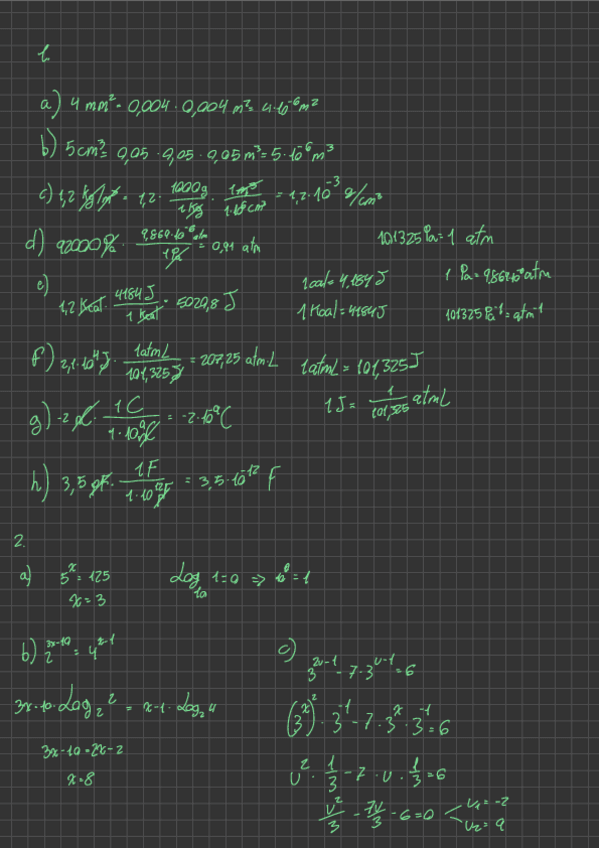 1.
a) 4 mm² = 0,004 · 0,004 m² = 4·10⁻⁶ m²
b) 5 cm³ = 0,05 · 0,05 · 0,05 m³ = 5·10⁻⁶ m³
c) 1,2 kg/m³ = 1,2 · 1000g/1 Kg · 1m³/1·10⁶cm³ = 1,2·10⁻³ g/cm³
d) 92000 Pa · 9,869·10⁻⁶ atm/1 Pa = 0,91 atm
101325 Pa = 1 atm
e) 1,2 Kcal · 4184 J/1 Kcal = 5020,8 J
1 cal = 4,184 J
1 Pa = 9,869·10⁻⁶ atm
1 Kcal = 4184 J
101325 Pa⁻¹ = atm⁻¹
f) 2,1·10⁴ J · 1atmL/101,325 J = 207,25 atm·L
1atmL = 101,325 J
1 J = 1/101,325 atmL
g) -2 · 1 C/1·10⁹ = -2·10⁻⁹ C
h) 3,5 pF · 1F/1·10¹² pF = 3,5·10⁻¹² F
2.
a) 5ˣ = 125
Log₁₀ 1 = 0 => 10⁰ = 1
x = 3
b) 2³ˣ⁻¹⁰ = 4ˣ⁻¹
c) 3²ᵘ⁻¹ - 7·3ᵘ⁻¹ = 6
3x-10 · Log₂ 2 = x-1 · Log₂ 4
(3ˣ)² · 3⁻¹ - 7 · 3ˣ · 3⁻¹ = 6
3x-10 = 2x-2
x = 8
u² · 1/3 - 7 · u · 1/3 = 6
u²/3 - 7u/3 - 6 = 0
u₁ = -2
u₂ = 9